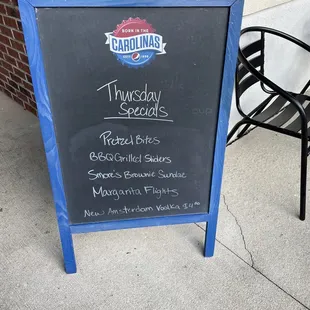 BORN IN THE
CAROLINAS
Thursday
Specials
Pretzel Bites
BBQ Grilled Sliders
Smore's Brownie Sundae
Margarita Flights
New Amsterdam Vodka $4